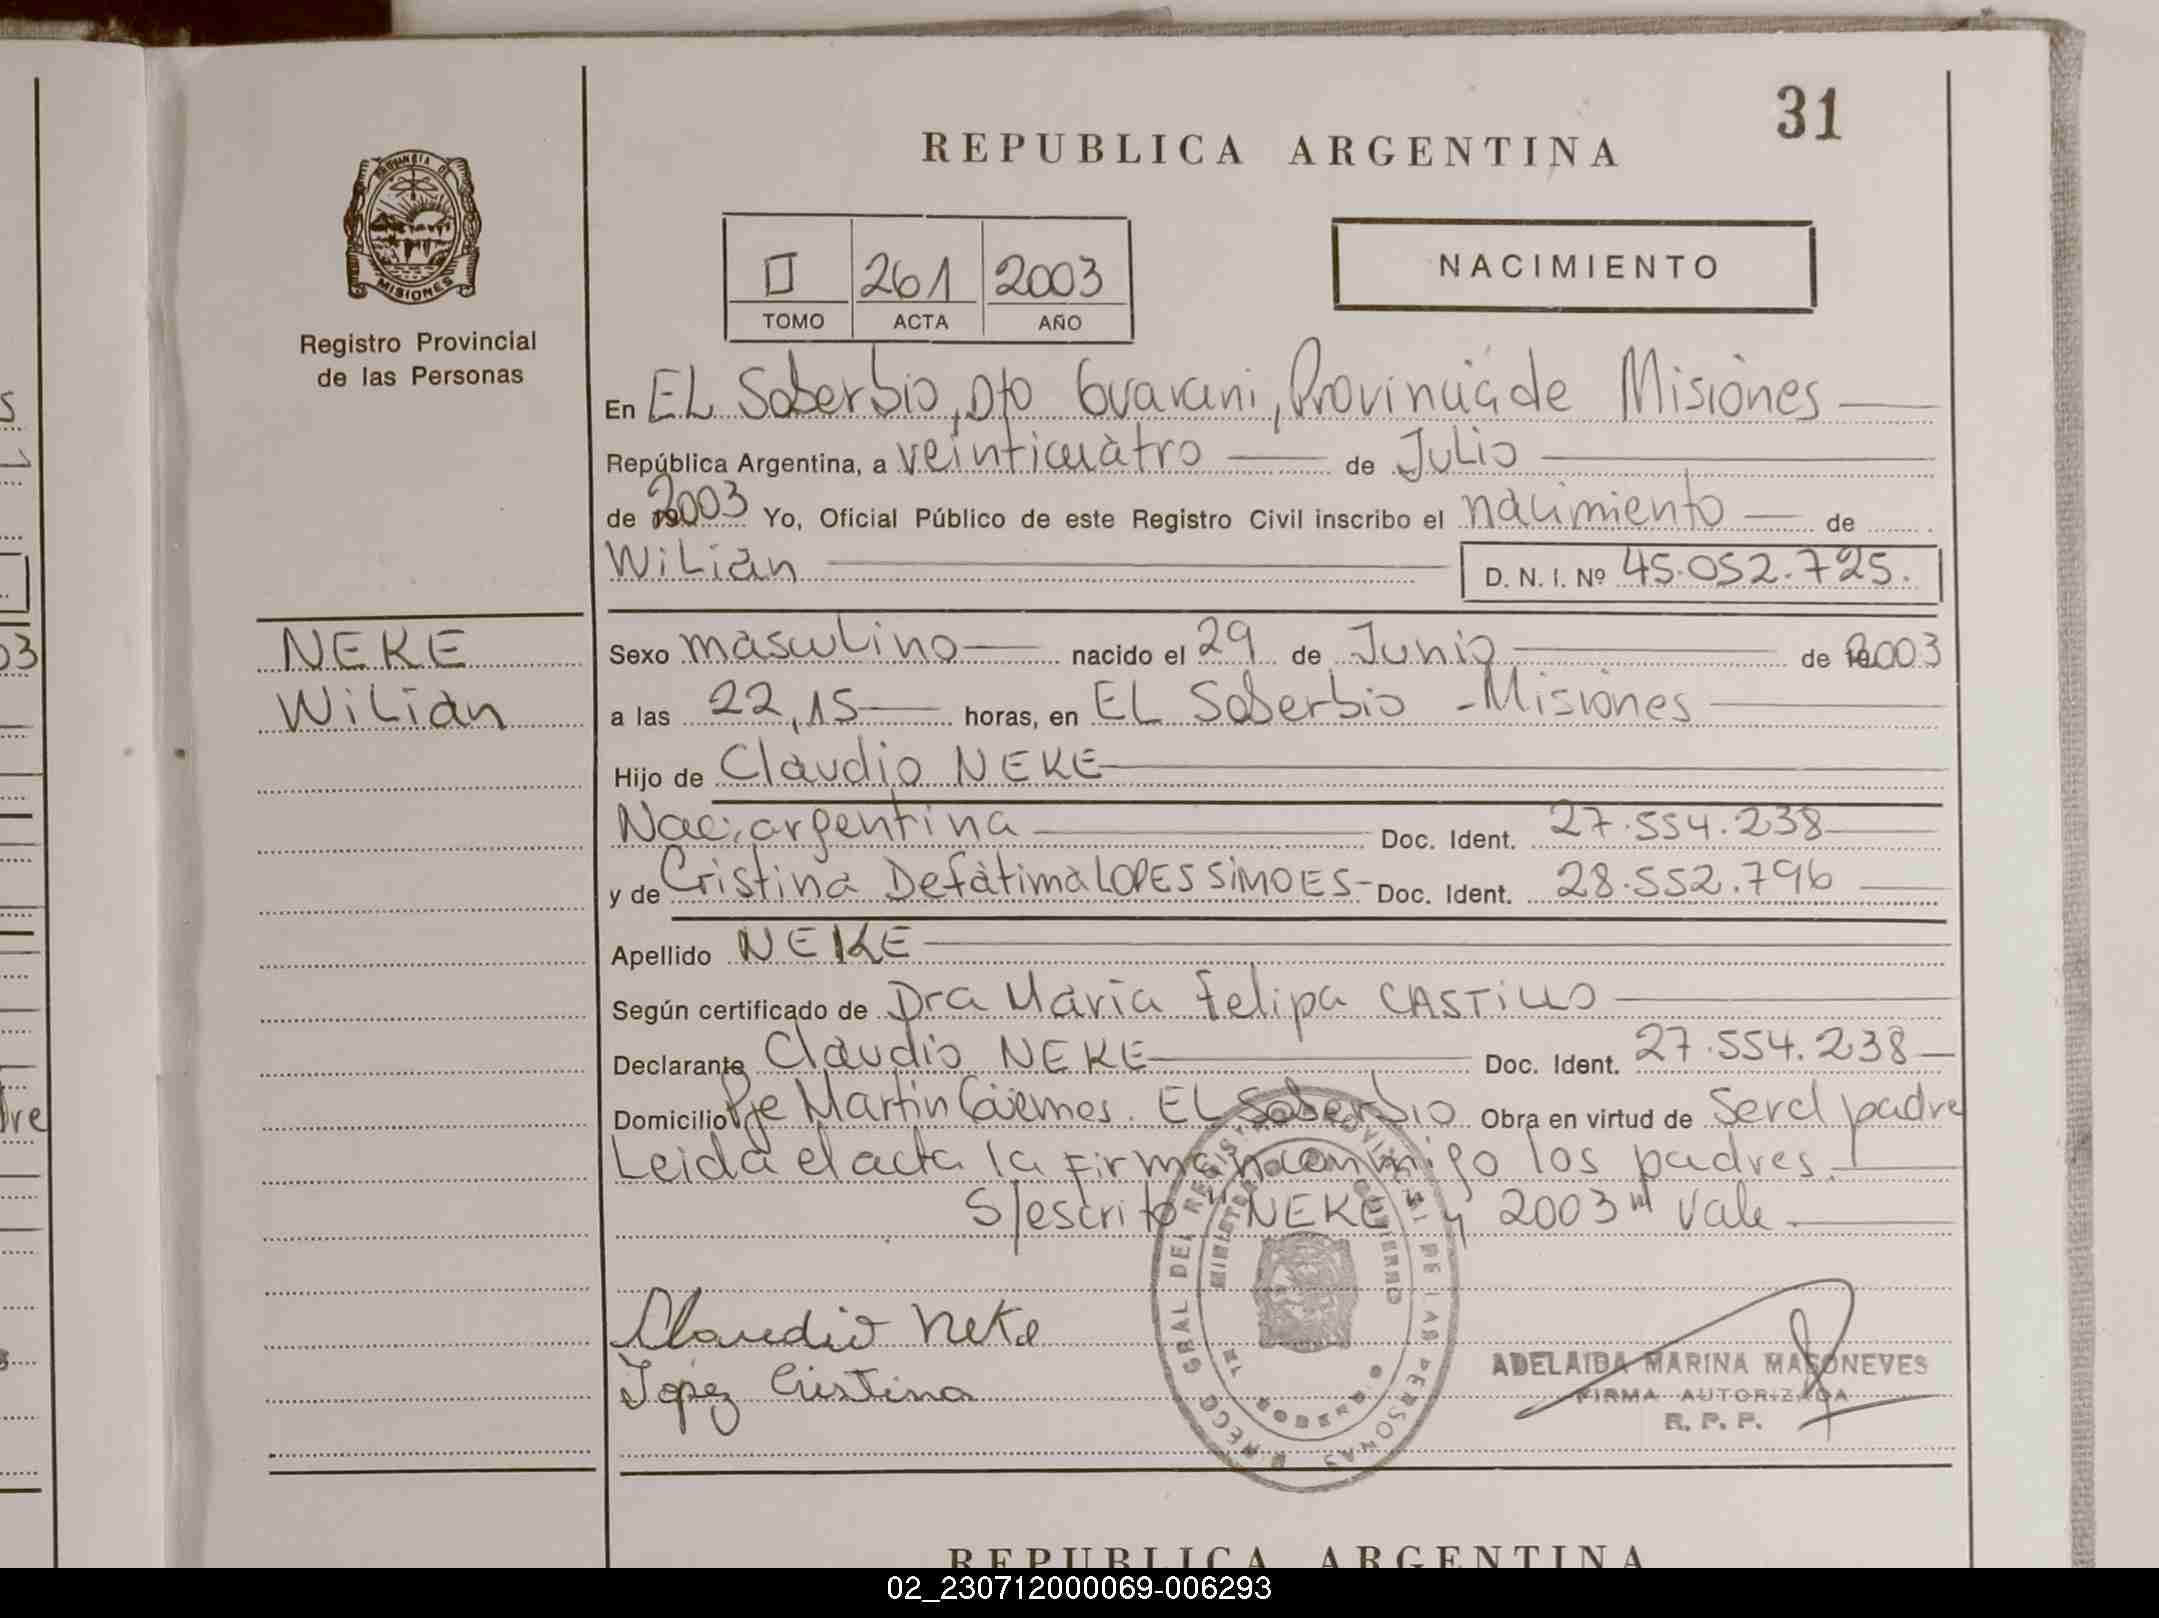 31
REPUBLICA ARGENTINA
PROVINCIA DE
MISIONES
Registro Provincial
de las Personas
II 261 2003
TOMO ACTA AÑO
NACIMIENTO
En EL Soberbio, Dto Guarani, Provincia de Misiones
República Argentina, a veinticuatro de Julio
de 2003 Yo, Oficial Público de este Registro Civil inscribo el nacimiento de
Wilian D. N. I. Nº 45.052.725.
NEKE
Wilian
Sexo masculino nacido el 29 de Junio de 2003
a las 22,15 horas, en EL Soberbio - Misiones
Hijo de Claudio NEKE
Nac. argentina Doc. Ident. 27.554.238
y de Cristina Defátima LOPES SIMOES - Doc. Ident. 28.552.796
Apellido NEKE
Según certificado de Dra Maria Felipa CASTILLO
Declarante Claudio NEKE Doc. Ident. 27.554.238
Domicilio Pje Martin Güemes. EL Soberbio Obra en virtud de Ser el padre
Leida el acta la firman conmigo los padres.
S/escrito "NEKE y 2003" Vale
Claudio Neke
Lopez Cristina
ADELAIDA MARINA MASONEVES
FIRMA AUTORIZADA
R. P. P.
REPUBLICA ARGENTINA
02_230712000069-006293